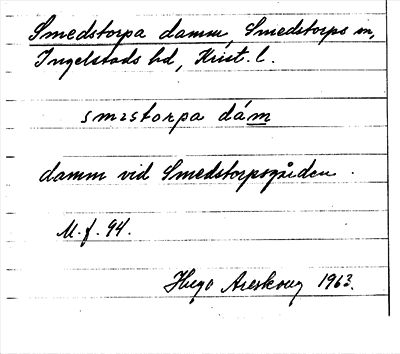 Smedstorpa damm, Smedstorps sn,
Ingelstads hd, Krist. l.
smesstorpa dám
damm vid Smedstorpsgården.
M. f. 94.
Hugo Areskoug 1963.